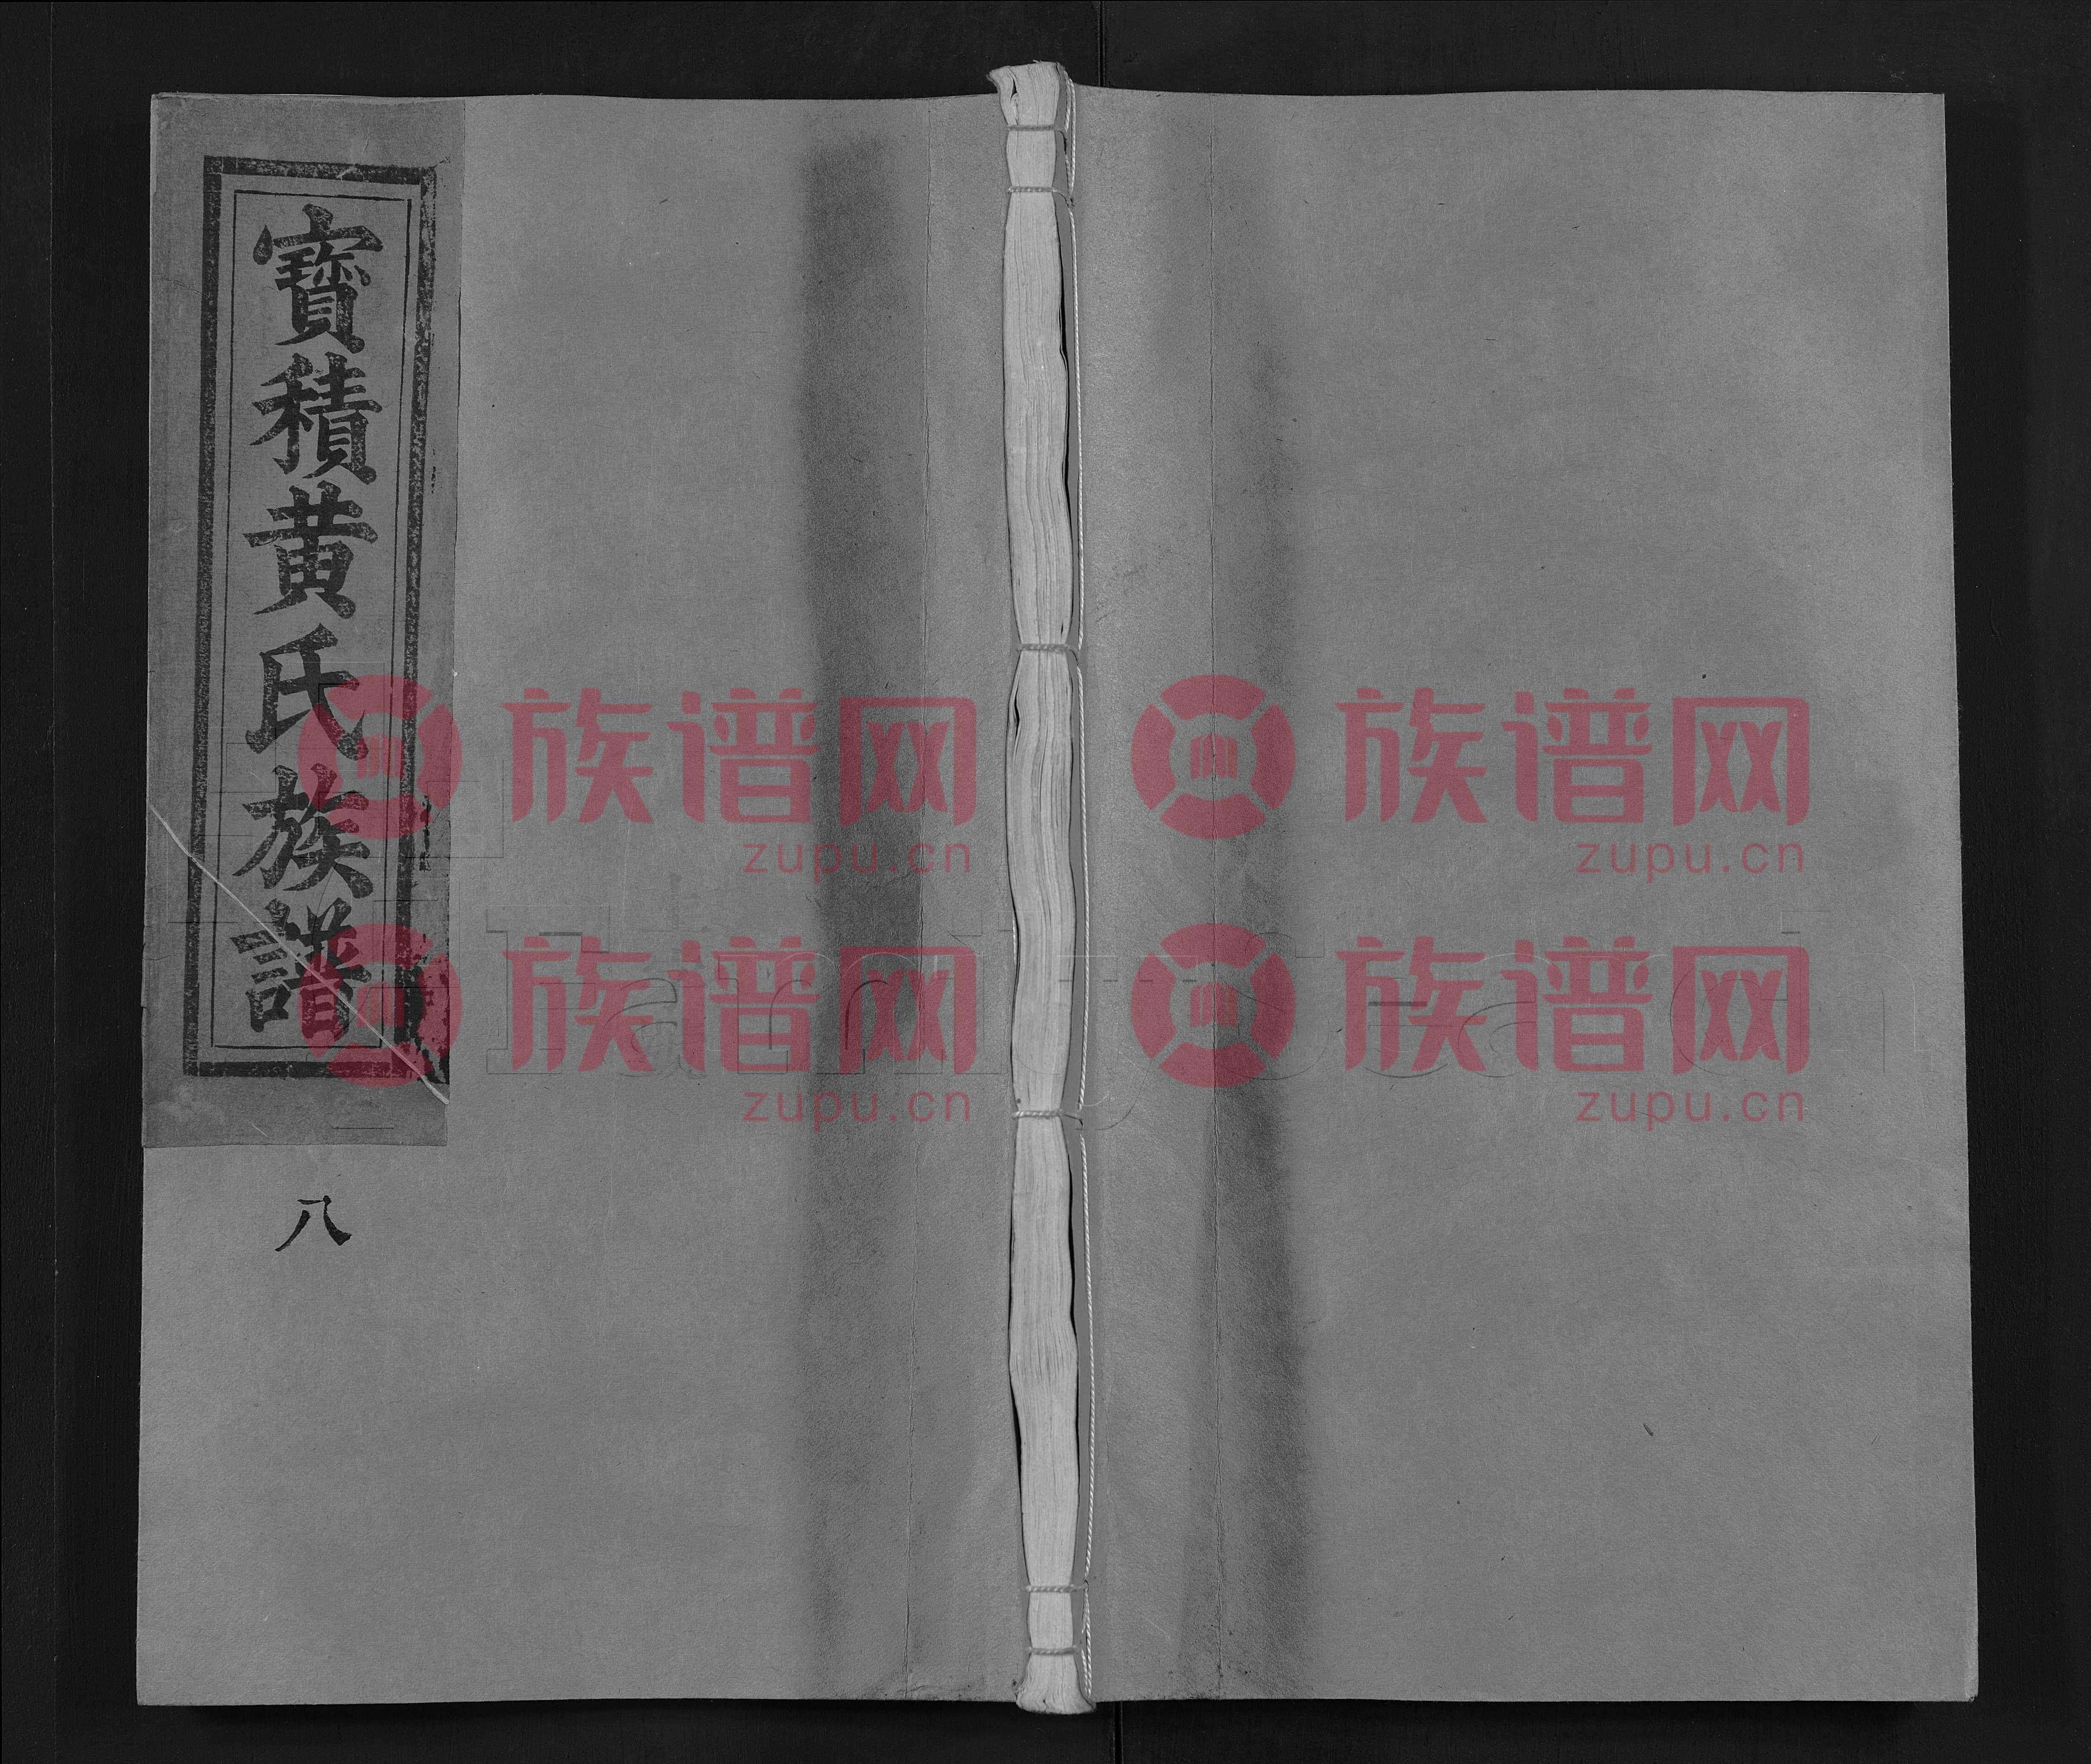 寳積黄氏族譜
八
族谱网 族谱网
zupu.cn zupu.cn
族谱网 族谱网
zupu.cn zupu.cn